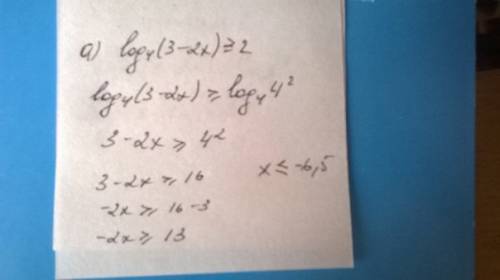 а) log₄(3-2x)≥2
log₄(3-2x) ≥ log₄4²
3-2x ≥ 4²
3-2x ≥ 16
-2x ≥ 16-3
-2x ≥ 13
x ≤ -6,5